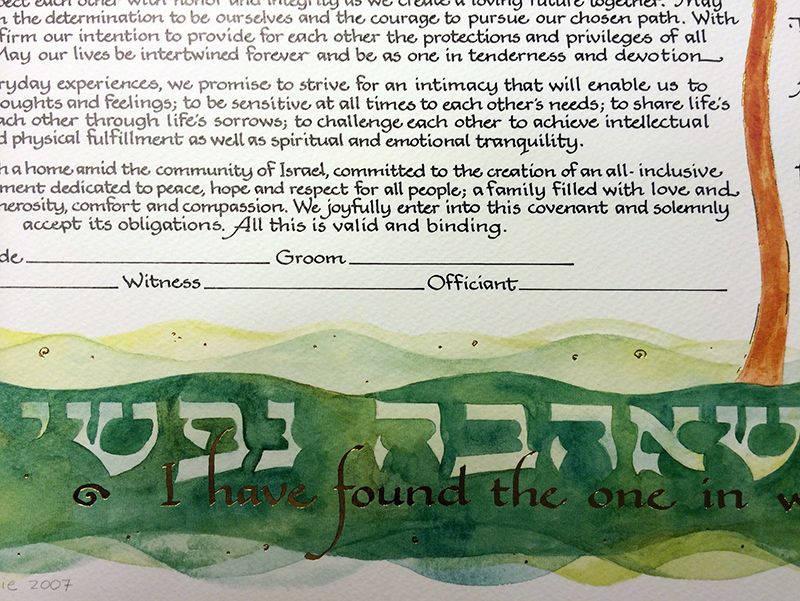 pect each other with honor and integrity as we create a loving future together. May
n the determination to be ourselves and the courage to pursue our chosen path. With
firm our intention to provide for each other the protections and privileges of all
May our lives be intertwined forever and be as one in tenderness and devotion
ryday experiences, we promise to strive for an intimacy that will enable us to
oughts and feelings; to be sensitive at all times to each other's needs; to share life's
ach other through life's sorrows; to challenge each other to achieve intellectual
d physical fulfillment as well as spiritual and emotional tranquility.
h a home amid the community of Israel, committed to the creation of an all-inclusive
ment dedicated to peace, hope and respect for all people; a family filled with love and
nerosity, comfort and compassion. We joyfully enter into this covenant and solemnly
accept its obligations. All this is valid and binding.
de Groom
Witness Officiant
שאהבה נפשי
I have found the one in w
ie 2007